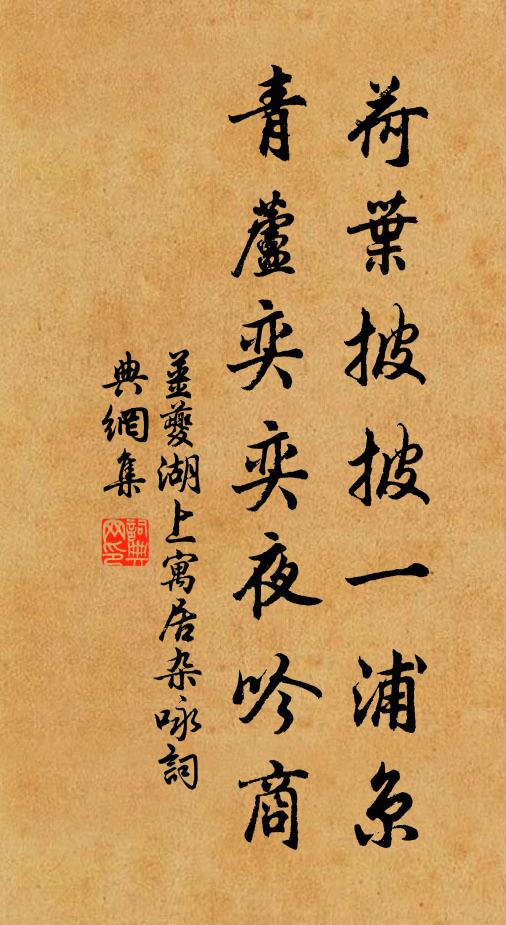 荷葉披披一浦凉
青蘆奕奕夜吟商
薑夔湖上寓居杂咏詞
典網集
詞典
网印